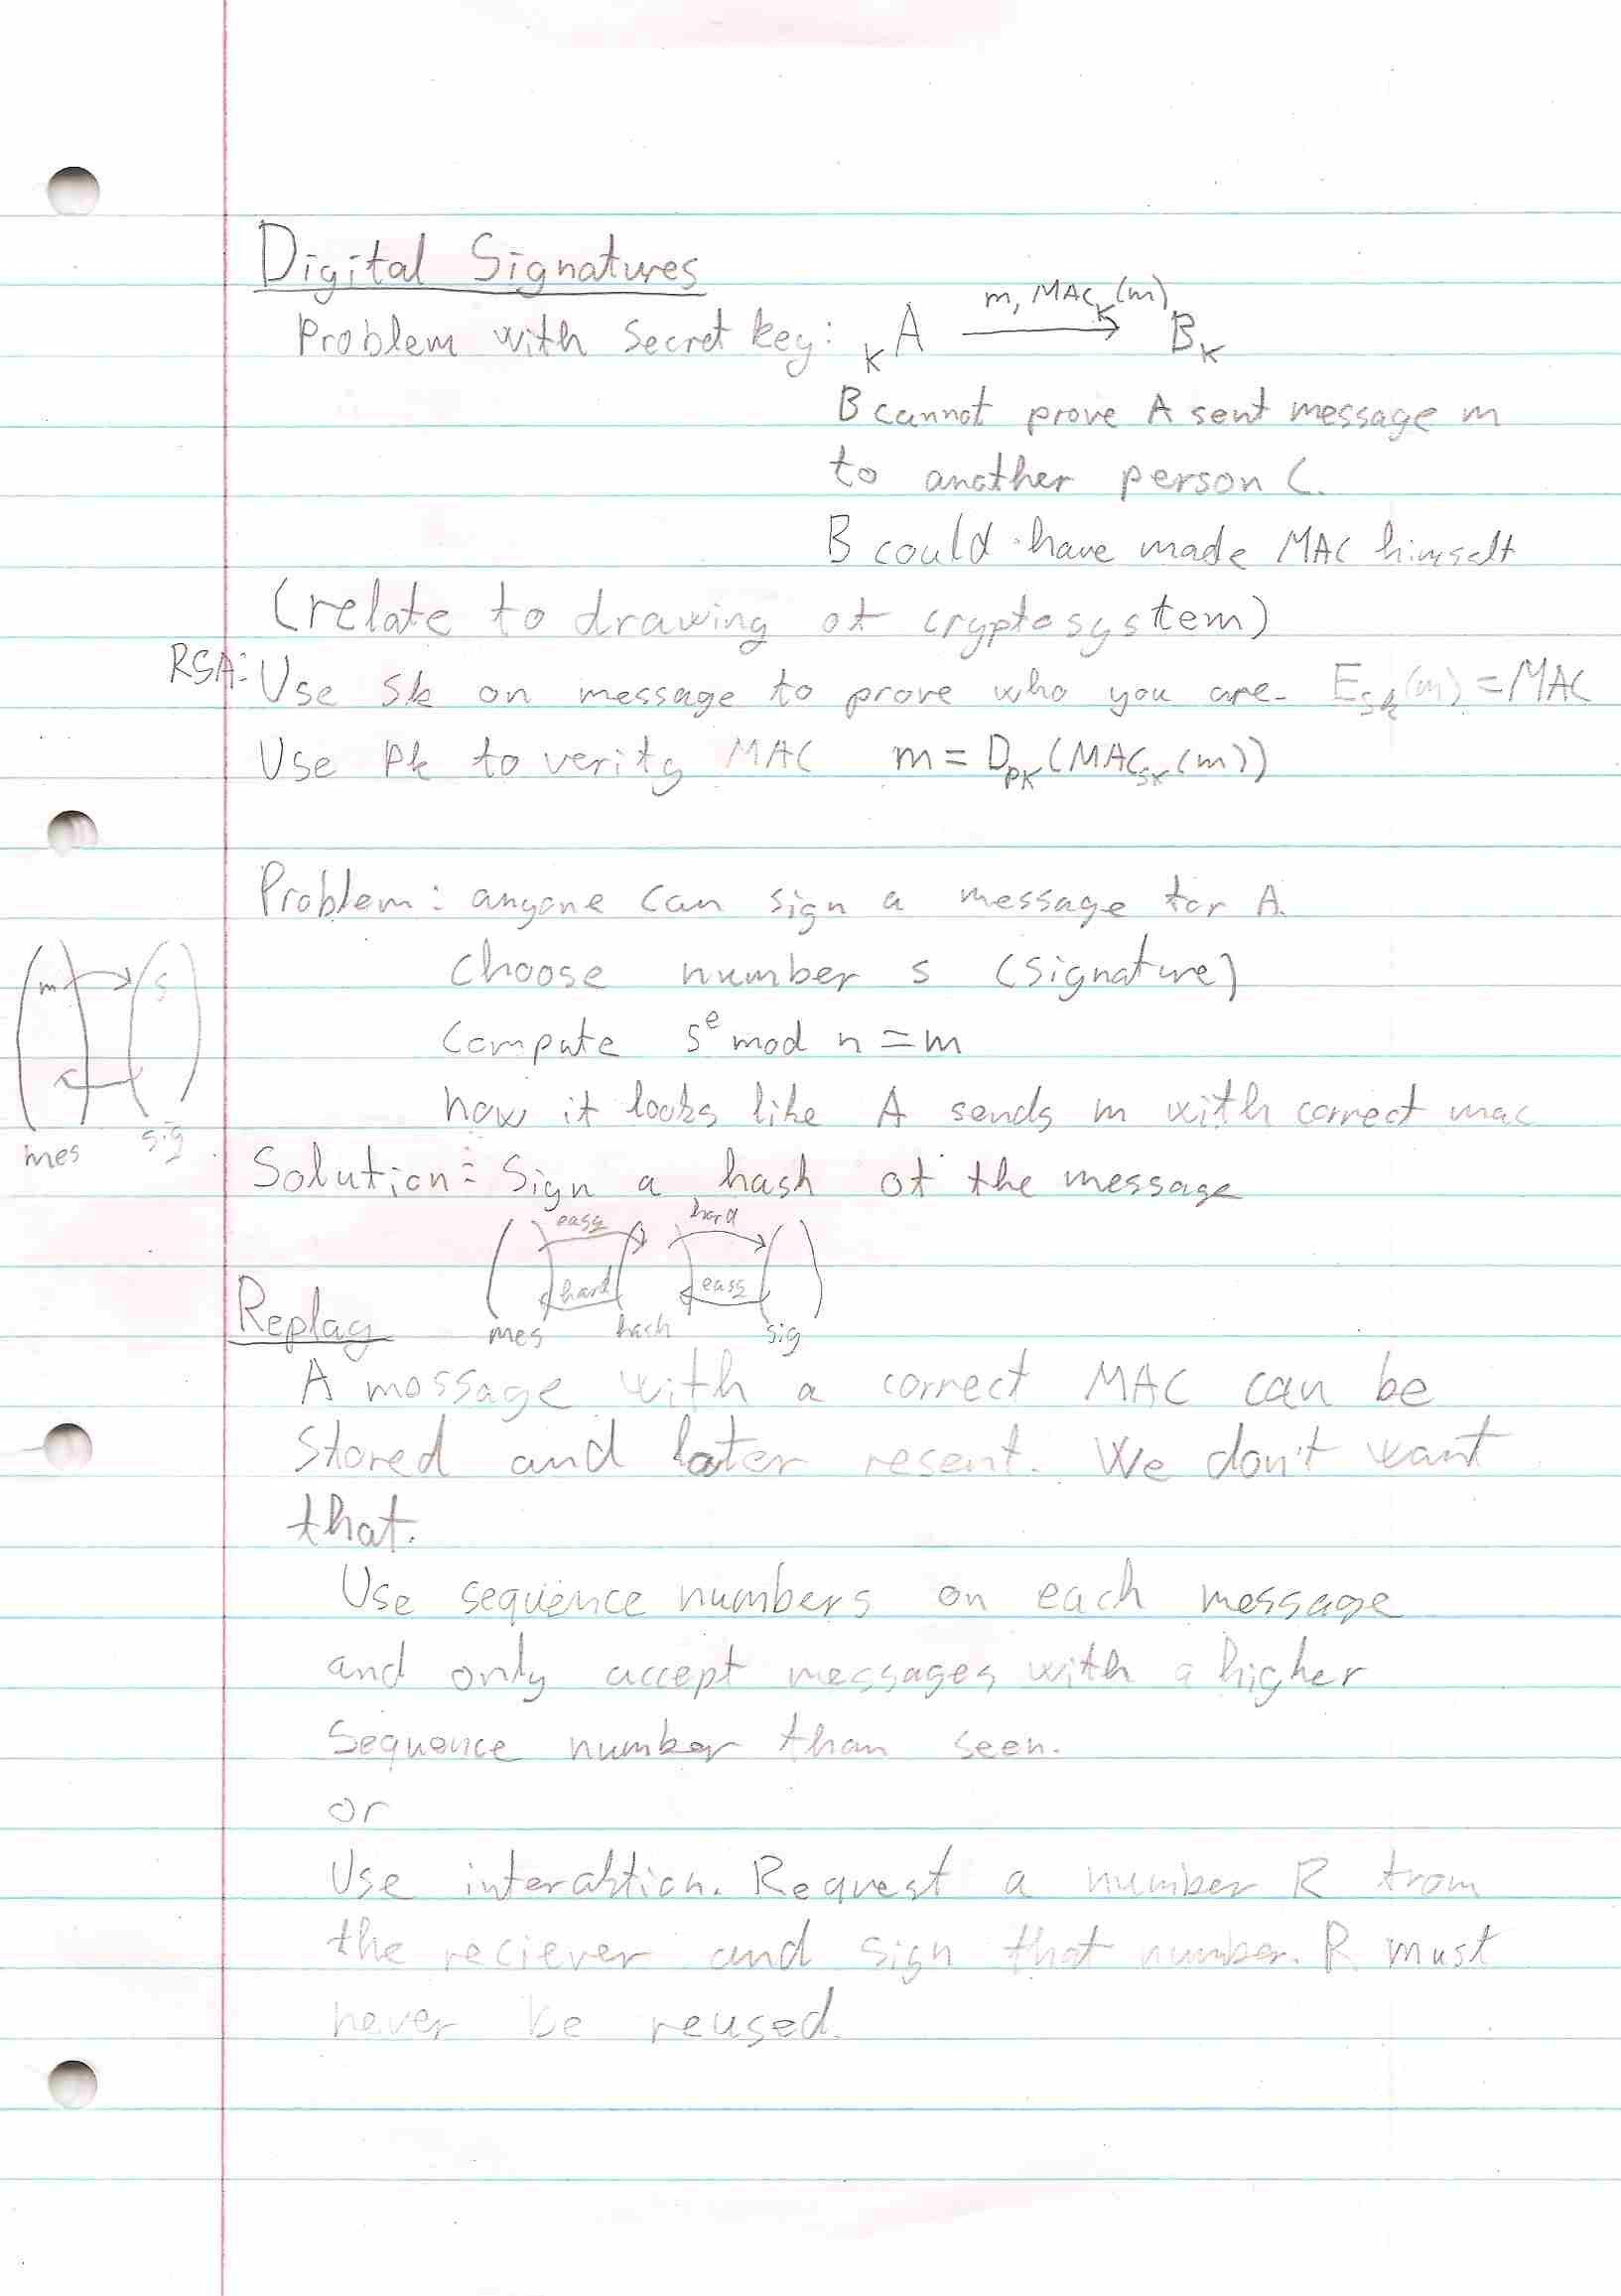 Digital Signatures
m, MAC_K(m)
Problem with secret key: K A → B K
B cannot prove A sent message m
to another person C.
B could have made MAC himself
(relate to drawing of cryptosystem)
RSA: Use sk on message to prove who you are. E_sk(m) = MAC
Use Pk to verify MAC m = D_PK(MAC_SK(m))
Problem: anyone can sign a message for A.
m s
choose number s (signature)
Compute s^e mod n = m
now it looks like A sends m with correct mac
mes sig
Solution: Sign a hash of the message
easy hard
hard easy
mes hash sig
Replay
A message with a correct MAC can be
Stored and later resent. We don't want
that.
Use sequence numbers on each message
and only accept messages with a higher
Sequence number than seen.
or
Use interaktion. Request a number R from
the reciever and sign that number. R must
never be reused.